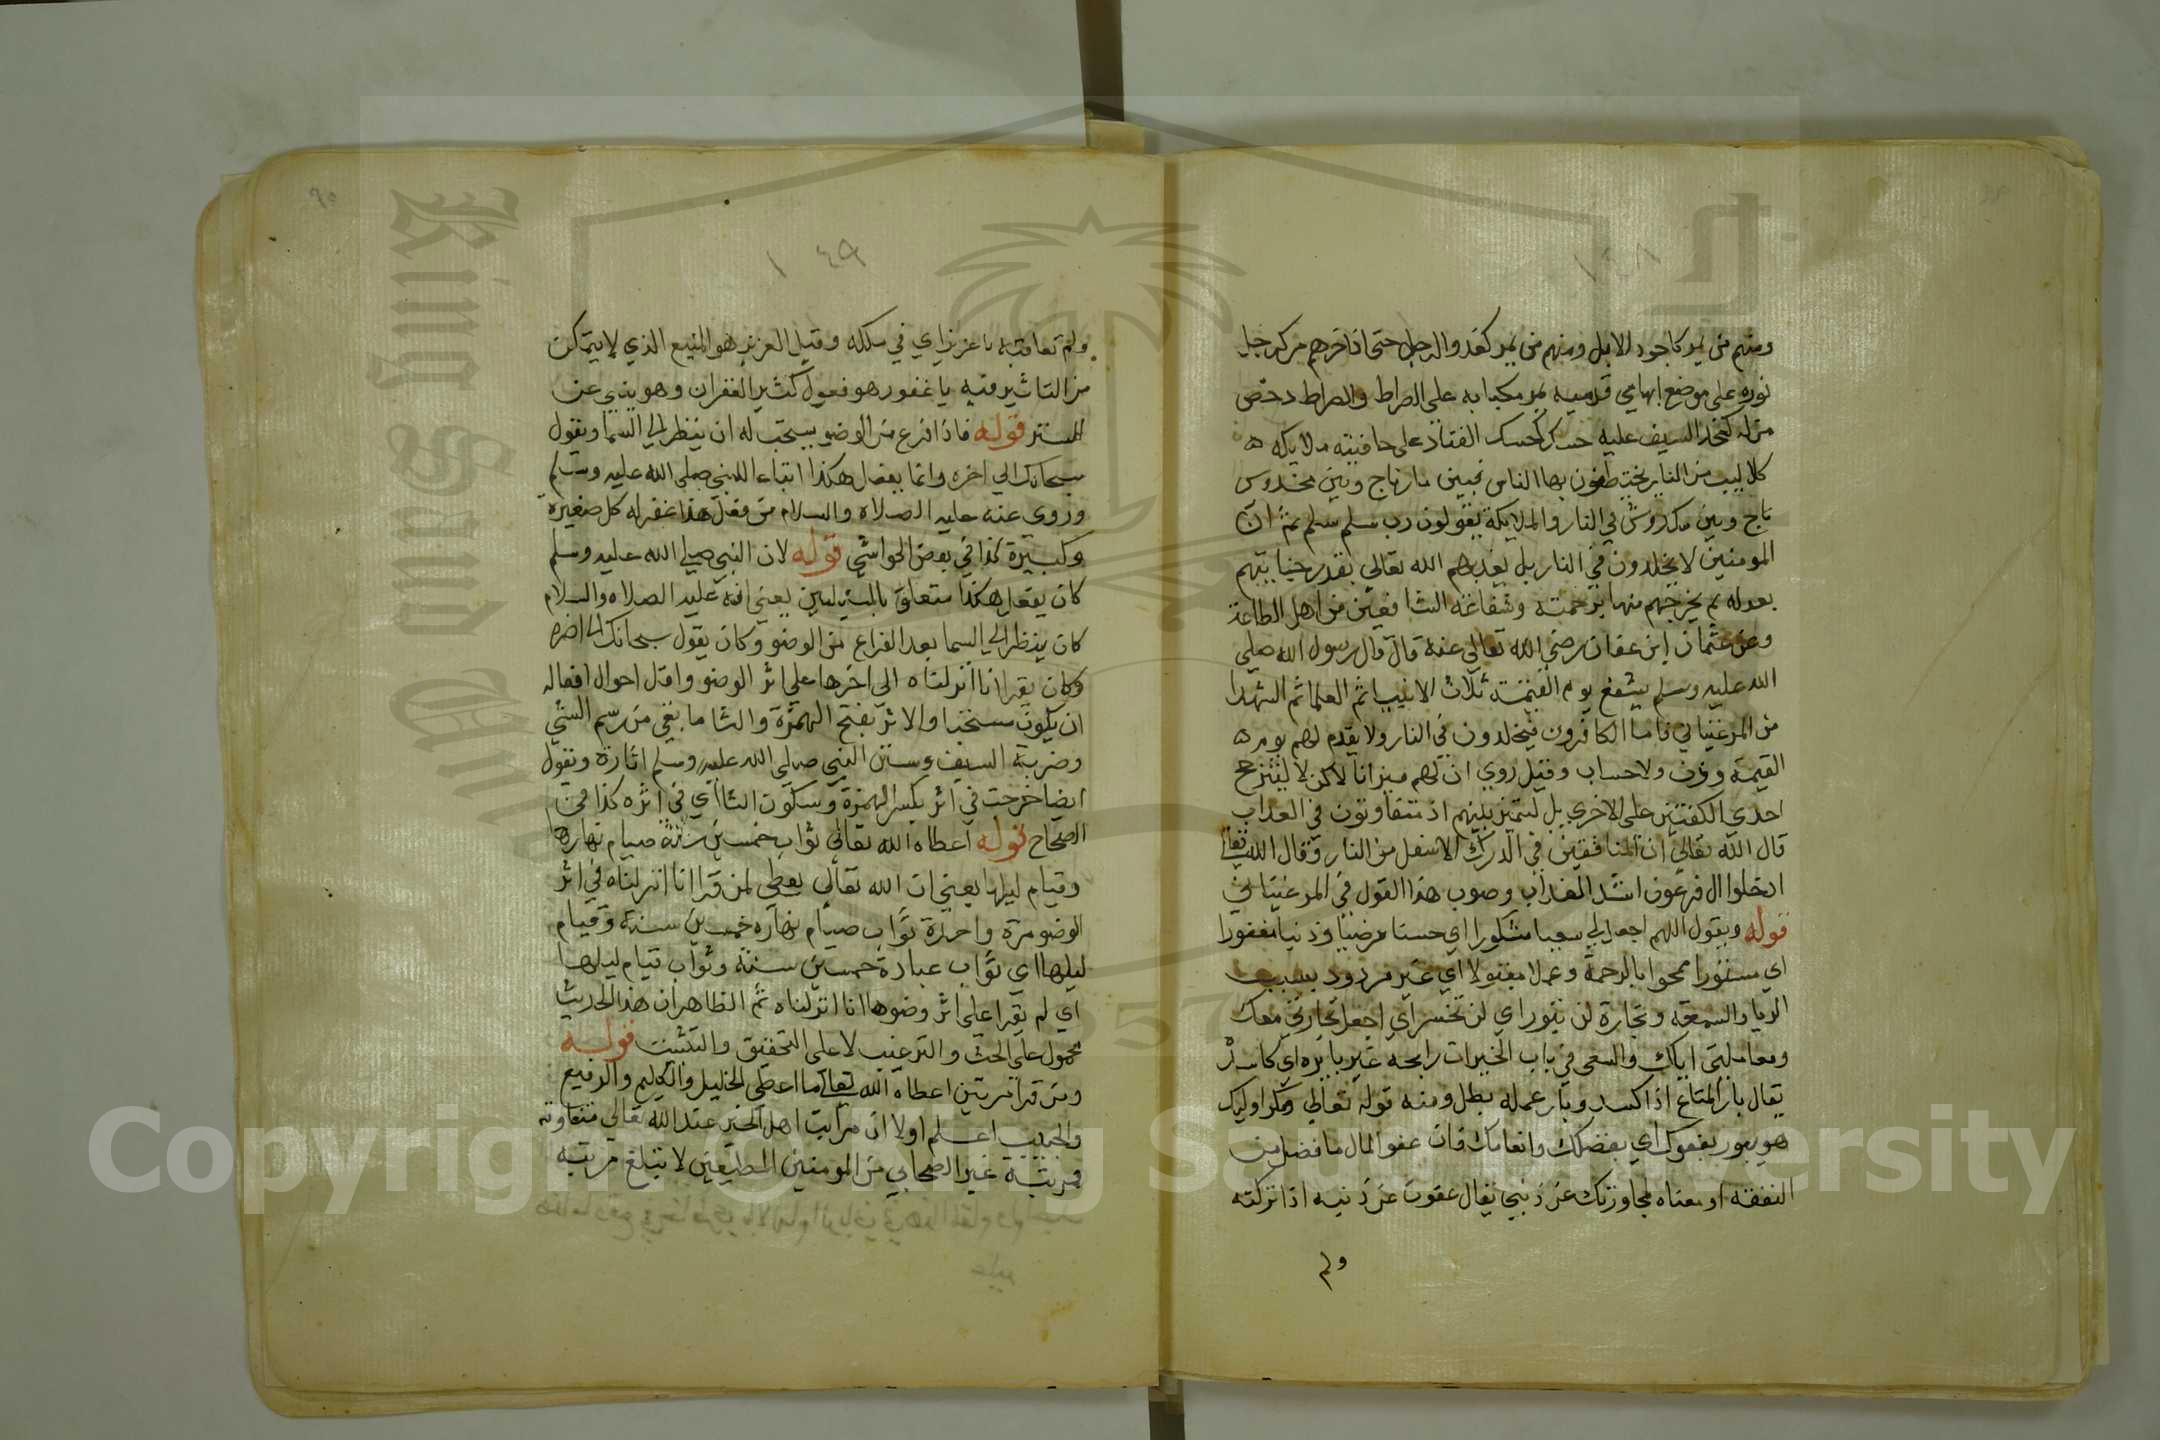 ١٤٨
ومنهم من يمر كاجود الابل ومنهم من يمر كعدو الرجل حتى اذا اخرهم من كر رجل
نوره على موضع ابهامي قدميه يمر مكبا به على الصراط والصراط دحض
مزلة كحد السيف عليه حسك كحسك القتاد على حافتيه ملايكه
كلاليب من النار يختطفون بها الناس فبين مار ناج وبين مخدوش
ناج وبين مكدوش في النار والملايكة يقولون رب سلم سلم ثم ان
المومنين لا يخلدون في النار بل يعذبهم الله تعالى بقدر جنايتهم
بعدله ثم يخرجهم منها برحمته وشفاعة الشافعين من اهل الطاعة
وعن عثمان ابن عفان رضي الله تعالى عنه قال قال رسول الله صلي
الله عليه وسلم يشفع يوم القيمة ثلاث الانبيا ثم العلما ثم الشهدا
من المرغيناني فاما الكافرون فيخلدون في النار ولا يقدم لهم يوم
القيمة وزن ولا حساب وقيل روي ان لهم ميزانا لاكن لا ليترجح
احدي الكفتين على الاخري بل لتميز بينهم اذ متفاوتون في العذاب
قال الله تعالى ان المنافقين في الدرك الاسفل من النار وقال الله تعالى
ادخلوا ال فرعون اشد العذاب وصوب هذا القول في المرغيناني
قوله ويقول اللهم اجعل لي سعيا مشكورا اي حسنا مرضيا وذنبا مغفورا
اي مستورا ممحوا بالرحمة وعملا مقبولا اي غير مردود بسبب
الريا والسمعة وتجارة لن تبور اي لن تخسر اي اجعل تجارتي معك
ومعاملتي اياك والسعي في باب الخيرات رابحه غير بايره اي كاسدة
يقال بار المتاع اذا كسد وبار عمله بطل ومنه قوله تعالي ومكر اوليك
هو يبور بعفوك اي بفضلك وانعامك فان عفو المال ما فضل من
النفقه او معناه بمجاوزتك عن ذنبي يقال عفوت عن ذنبه اذا تركته
ولم
٩٥
١٤٩
ولم تعاقبه يا عزيز اي في ملكه وقيل العزيز هو المنيع الذي لا يتمكن
من التاثير فيه يا غفور هو فعول كثير الغفران وهو ينبي عن
الستر قوله فاذا فرغ من الوضو يستحب له ان ينظر الى السما ويقول
سبحانك الى اخره وانما يفعل هكذا اتباعا للنبي صلى الله عليه وسلم
وروى عنه عليه الصلاة والسلام من فعل هذا غفر له كل صغيرة
وكبيرة كذا في بعض الحواشي قوله لان النبي صلى الله عليه وسلم
كان يفعل هكذا متعلق بالمسئلتين يعني انه عليه الصلاه والسلام
كان ينظر الى السما بعد الفراغ من الوضو وكان يقول سبحانك الى اخره
وكان يقرا انا انزلناه الى اخرها على اثر الوضو واقل احوال افعاله
ان يكون مستحبا والاثر بفتح الهمزة والثا ما بقي من رسم الشي
وضربة السيف وسنن النبي صلى الله عليه وسلم اثاره وتقول
ايضا خرجت في اثر بكسر الهمزة وسكون الثا اي في اثره كذا في
الصحاح قوله اعطاه الله تعالى ثواب خمسين سنة صيام نهارها
وقيام ليلها يعني ان الله تعالى يعطي لمن قرا انا انزلناه في اثر
الوضو مرة واحدة ثواب صيام نهاره خمسين سنة وقيام
ليلها اي ثواب عبادة خمسين سنة وثواب قيام ليلها
اي لم يقرا على اثر وضوها انا انزلناه ثم الظاهر ان هذا الحديث
محمول على الحث والترغيب لا على التحقيق والتثبيت قوله
ومن قرا مرتين اعطاه الله تعالى ما اعطى الخليل والكليم والرفيع
والحبيب اعلم اولا ان مراتب اهل الخير عند الله تعالى متفاوته
فمرتبة غير الصحابي من المومنين المطيعين لا تبلغ مرتبه
King Saud University
1957
Copyright © King Saud University